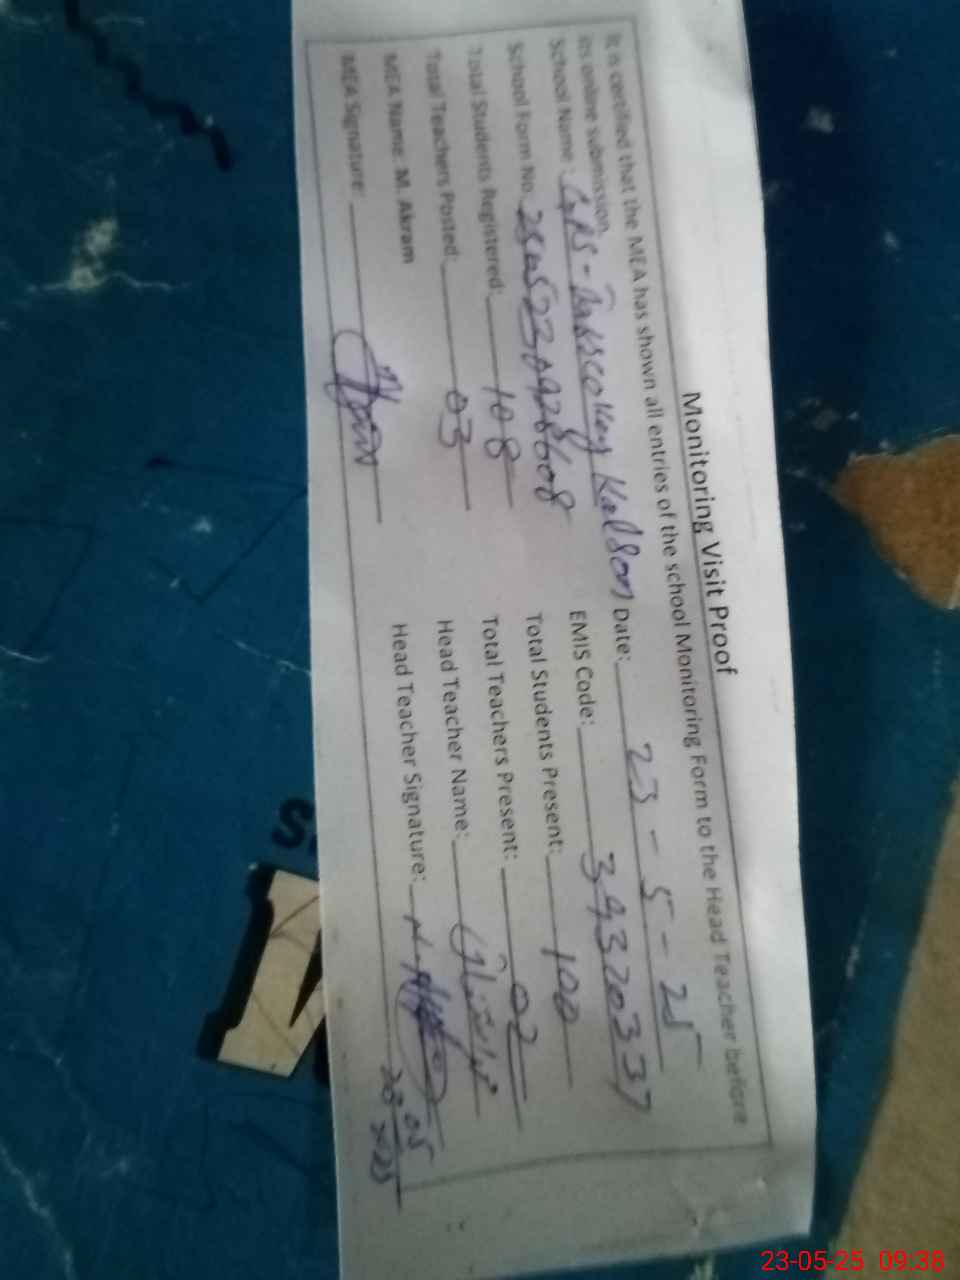 Monitoring Visit Proof
It is certified that the MEA has shown all entries of the school Monitoring Form to the Head Teacher before
its online submission.
School Name : GPS - Kalson Date: 23 - 5 - 25
School Form No. EMIS Code: 39320337
Total Students Registered: 108 Total Students Present: 100
Total Teachers Posted: 03 Total Teachers Present: 02
MEA Name: M. Akram Head Teacher Name:
MEA Signature: Head Teacher Signature:
23-05-25 09:38